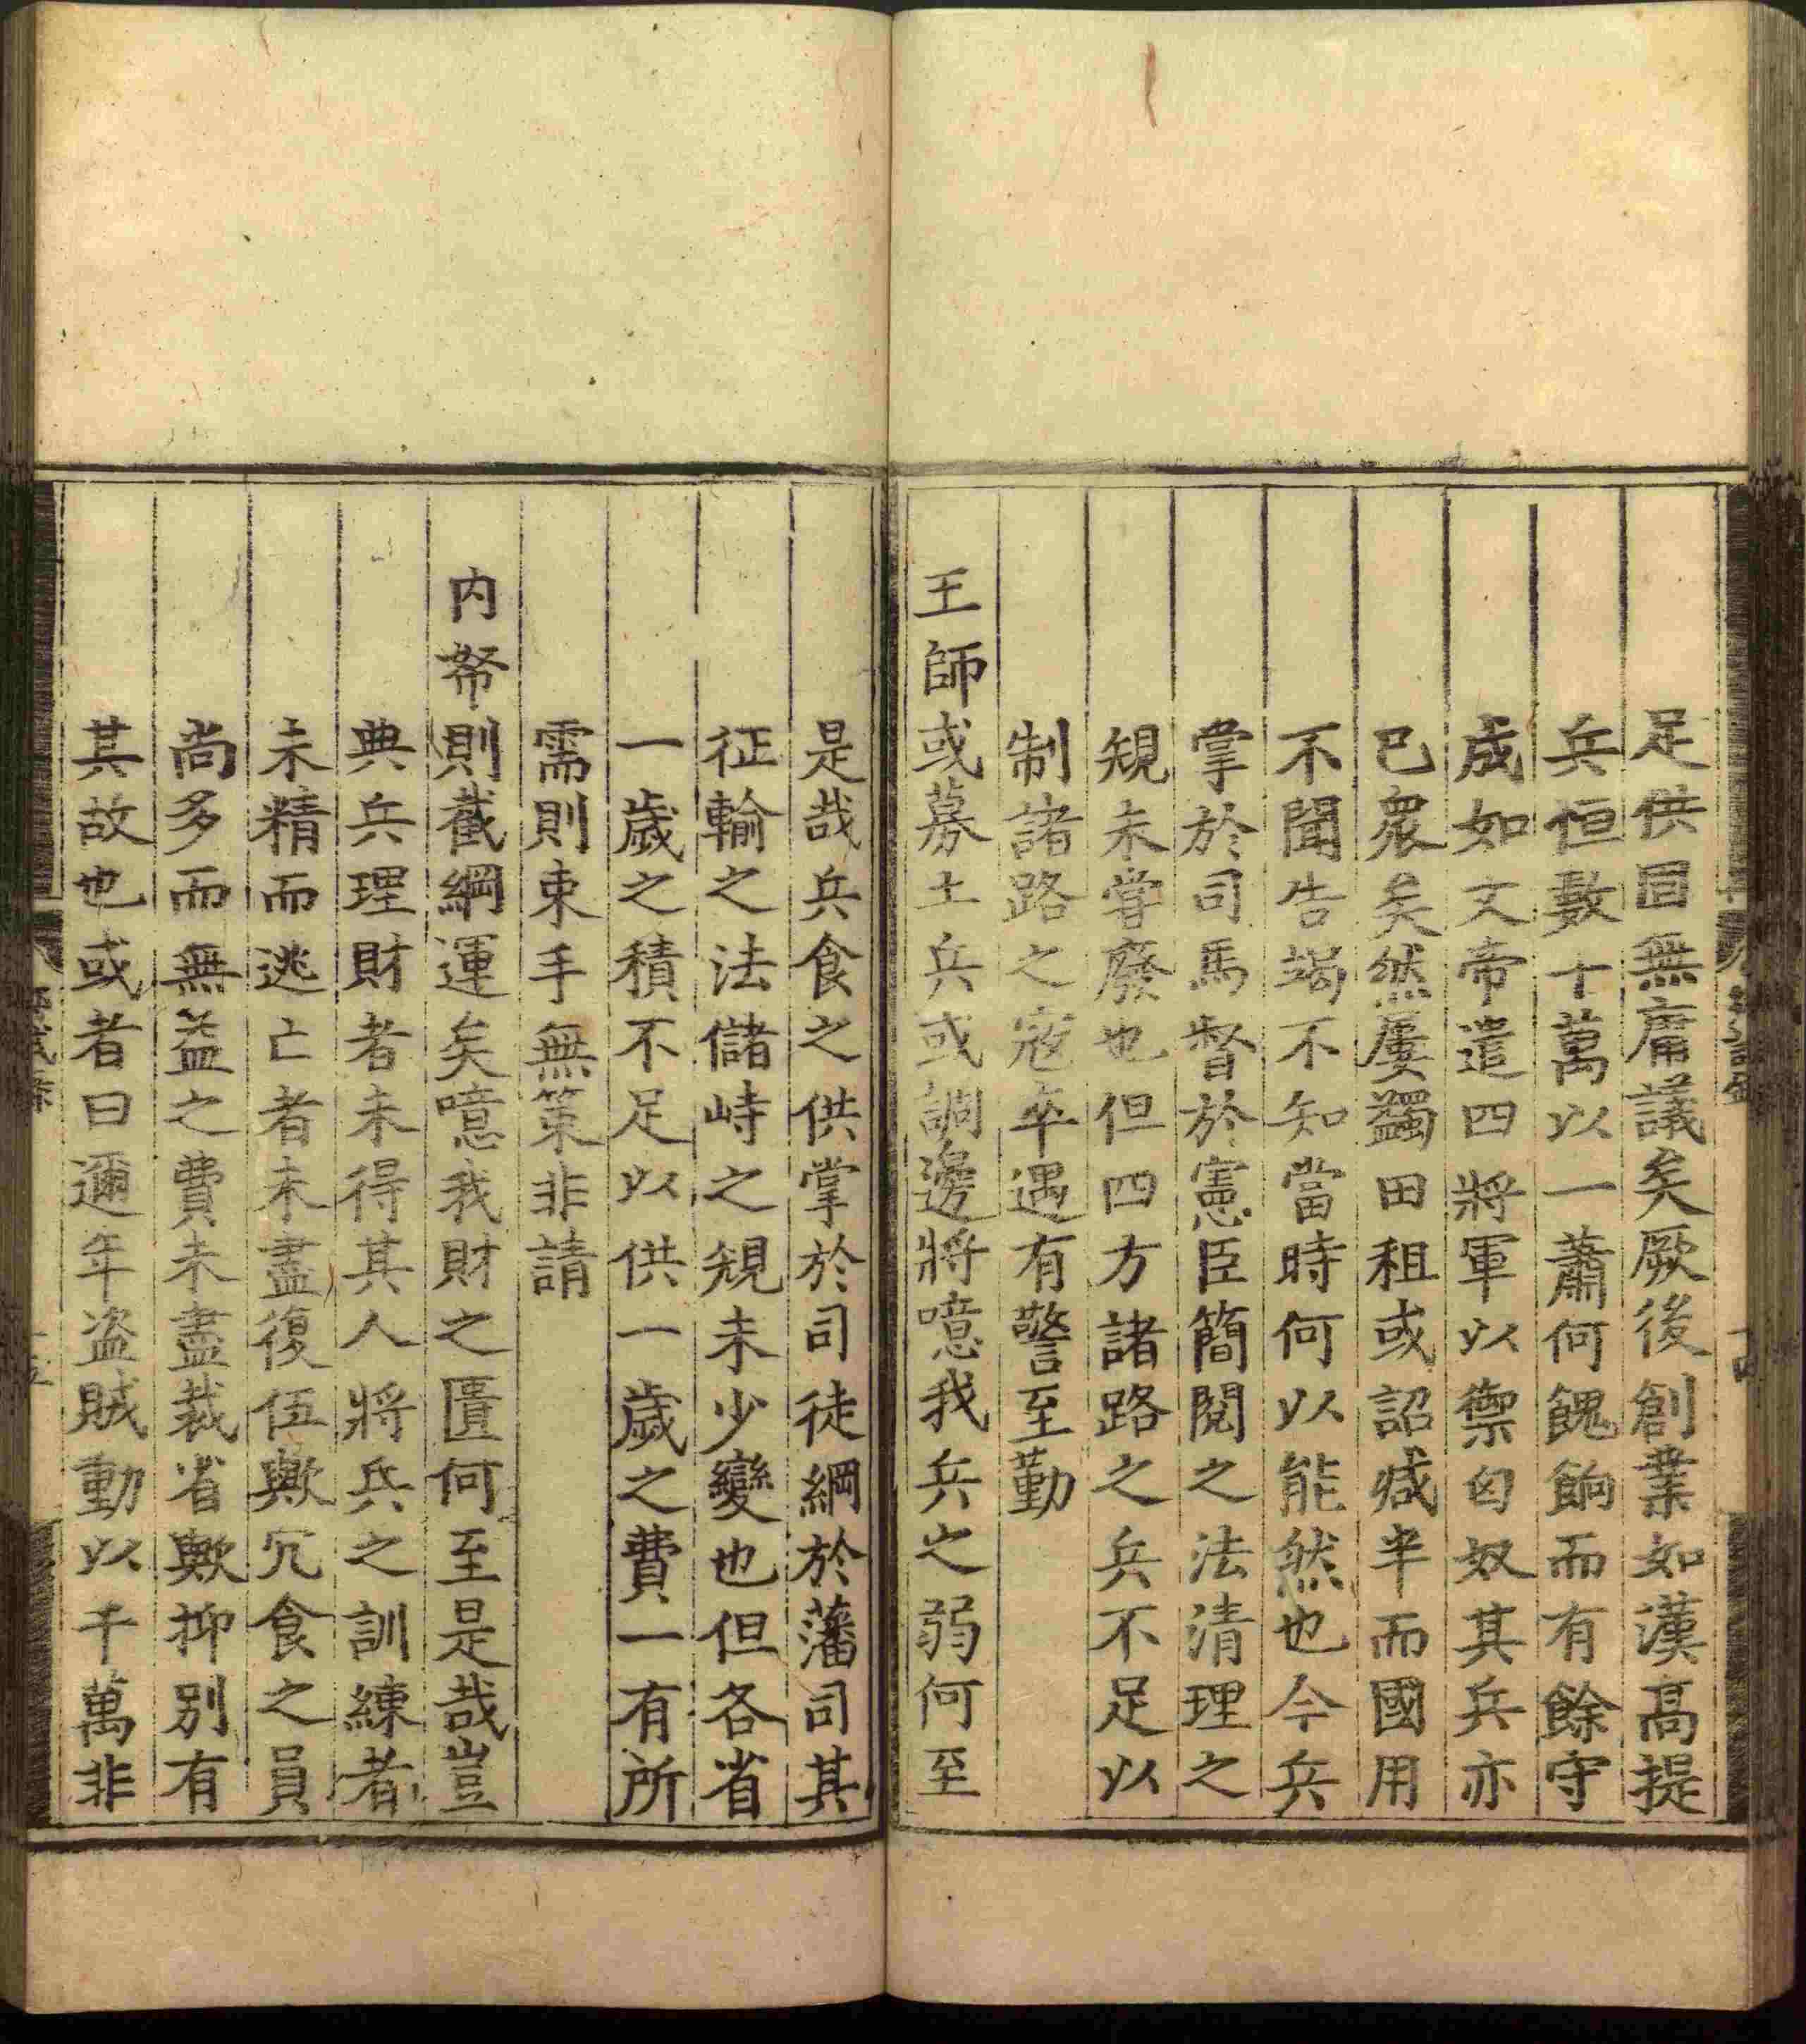 足供固無庸議矣厥後創業如漢高提
兵恒數十萬以一蕭何餽餉而有餘守
成如文帝遣四將軍以禦匈奴其兵亦
已衆矣然屢蠲田租或詔減半而國用
不聞告竭不知當時何以能然也今兵
掌於司馬督於憲臣簡閱之法清理之
規未嘗廢也但四方諸路之兵不足以
制諸路之寇卒遇有警至勤
王師或募土兵或調邊將噫我兵之弱何至
是哉兵食之供掌於司徒綱於藩司其
征輸之法儲峙之規未少變也但各省
一歲之積不足以供一歲之費一有所
需則束手無策非請
内帑則截綱運矣噫我財之匱何至是哉豈
典兵理財者未得其人將兵之訓練者
未精而逃亡者未盡復伍歟冗食之員
尚多而無益之費未盡裁省歟抑別有
其故也或者曰邇年盗賊動以千萬非